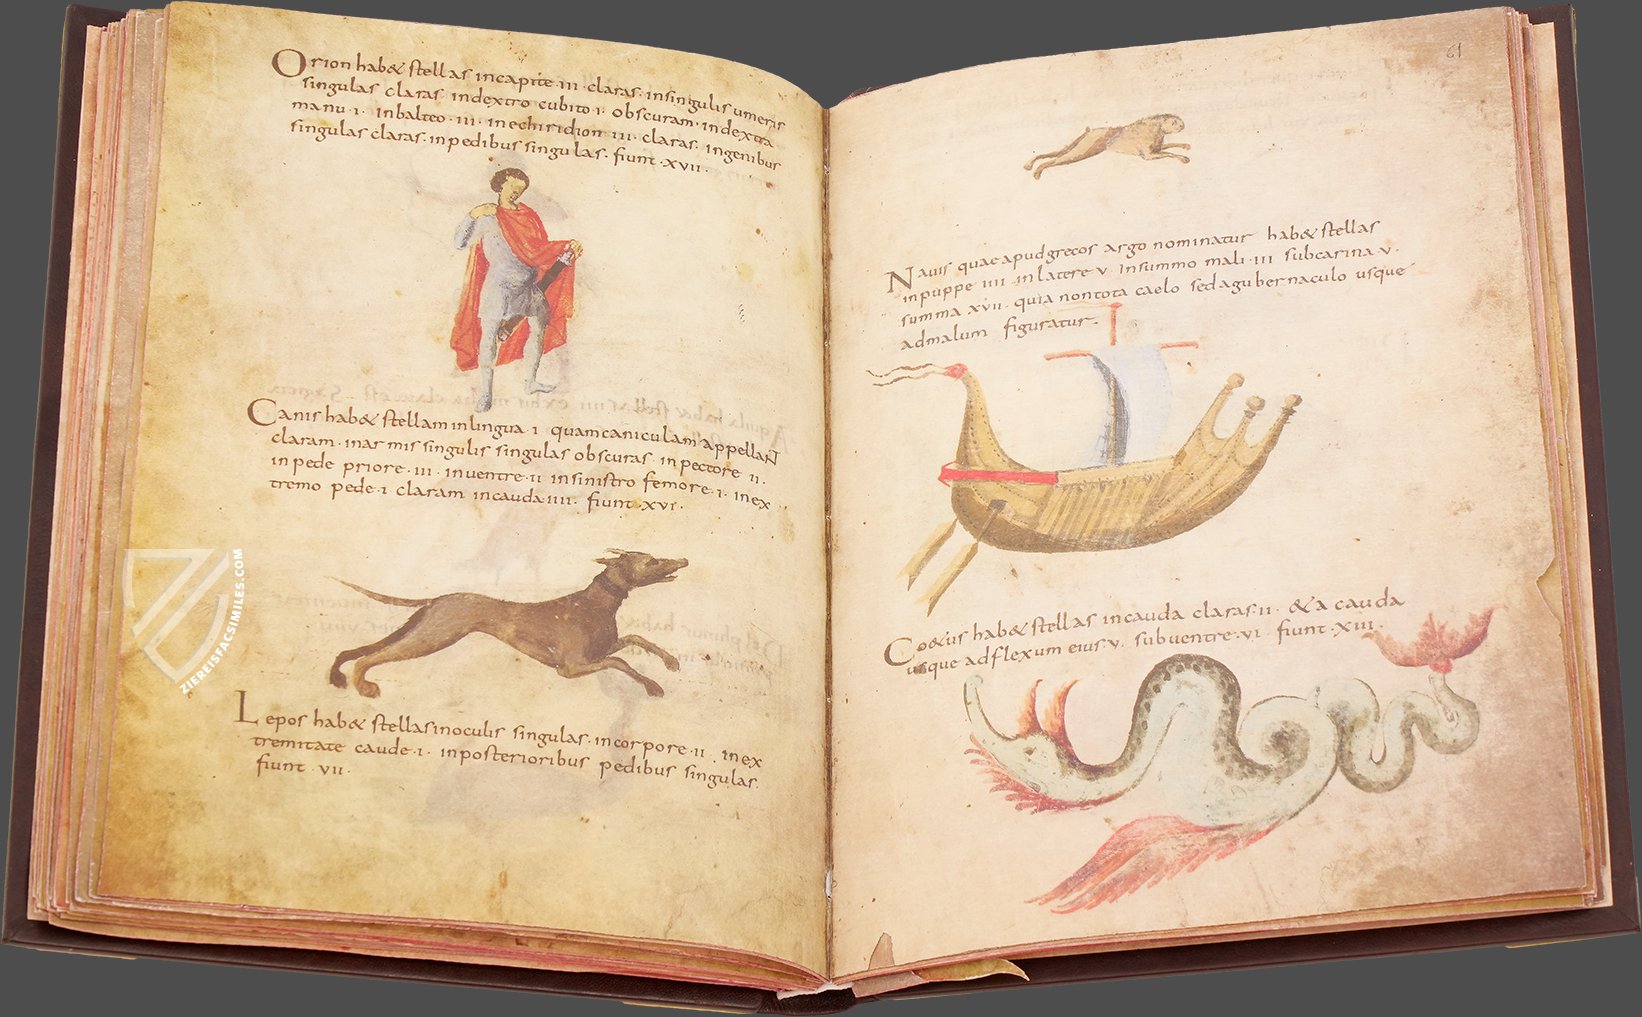 Orion hab& stellas incapite·III·claras·insingulis umeris
singulas claras·indextro cubito·I·obscuram·indextra
manu·I· inbalteo·III·inechiridion III·claras·ingenibus
singulas claras·inpedibus singulas·fiunt·XVII·
Canis hab& stellam inlingua·I· quamcaniculam appellant
claram·inarmis singulis singulas obscuras·inpectore·II·
inpede priore·III·inventre·II insinistro femore·I·inex
tremo pede·I claram incauda IIII· fiunt·XVI·
Lepos hab& stellas inoculis singulas·incorpore·II·inex
tremitate caude·I· inposterioribus pedibus singulas·
fiunt·VII·
61
Navis quae apudgrecos argo nominatur hab& stellas
inpuppe IIII·inlatere·V·insummo mali·III subcarina·V·
summa XVII·quia nontota caelo sedagubernaculo usque
admalum figuratur·
Co&us hab& stellas incauda claras·II· &a cauda
usque adflexum eius·V· subventre·VI· fiunt·XIII·
ZIEREISFACSIMILES.COM